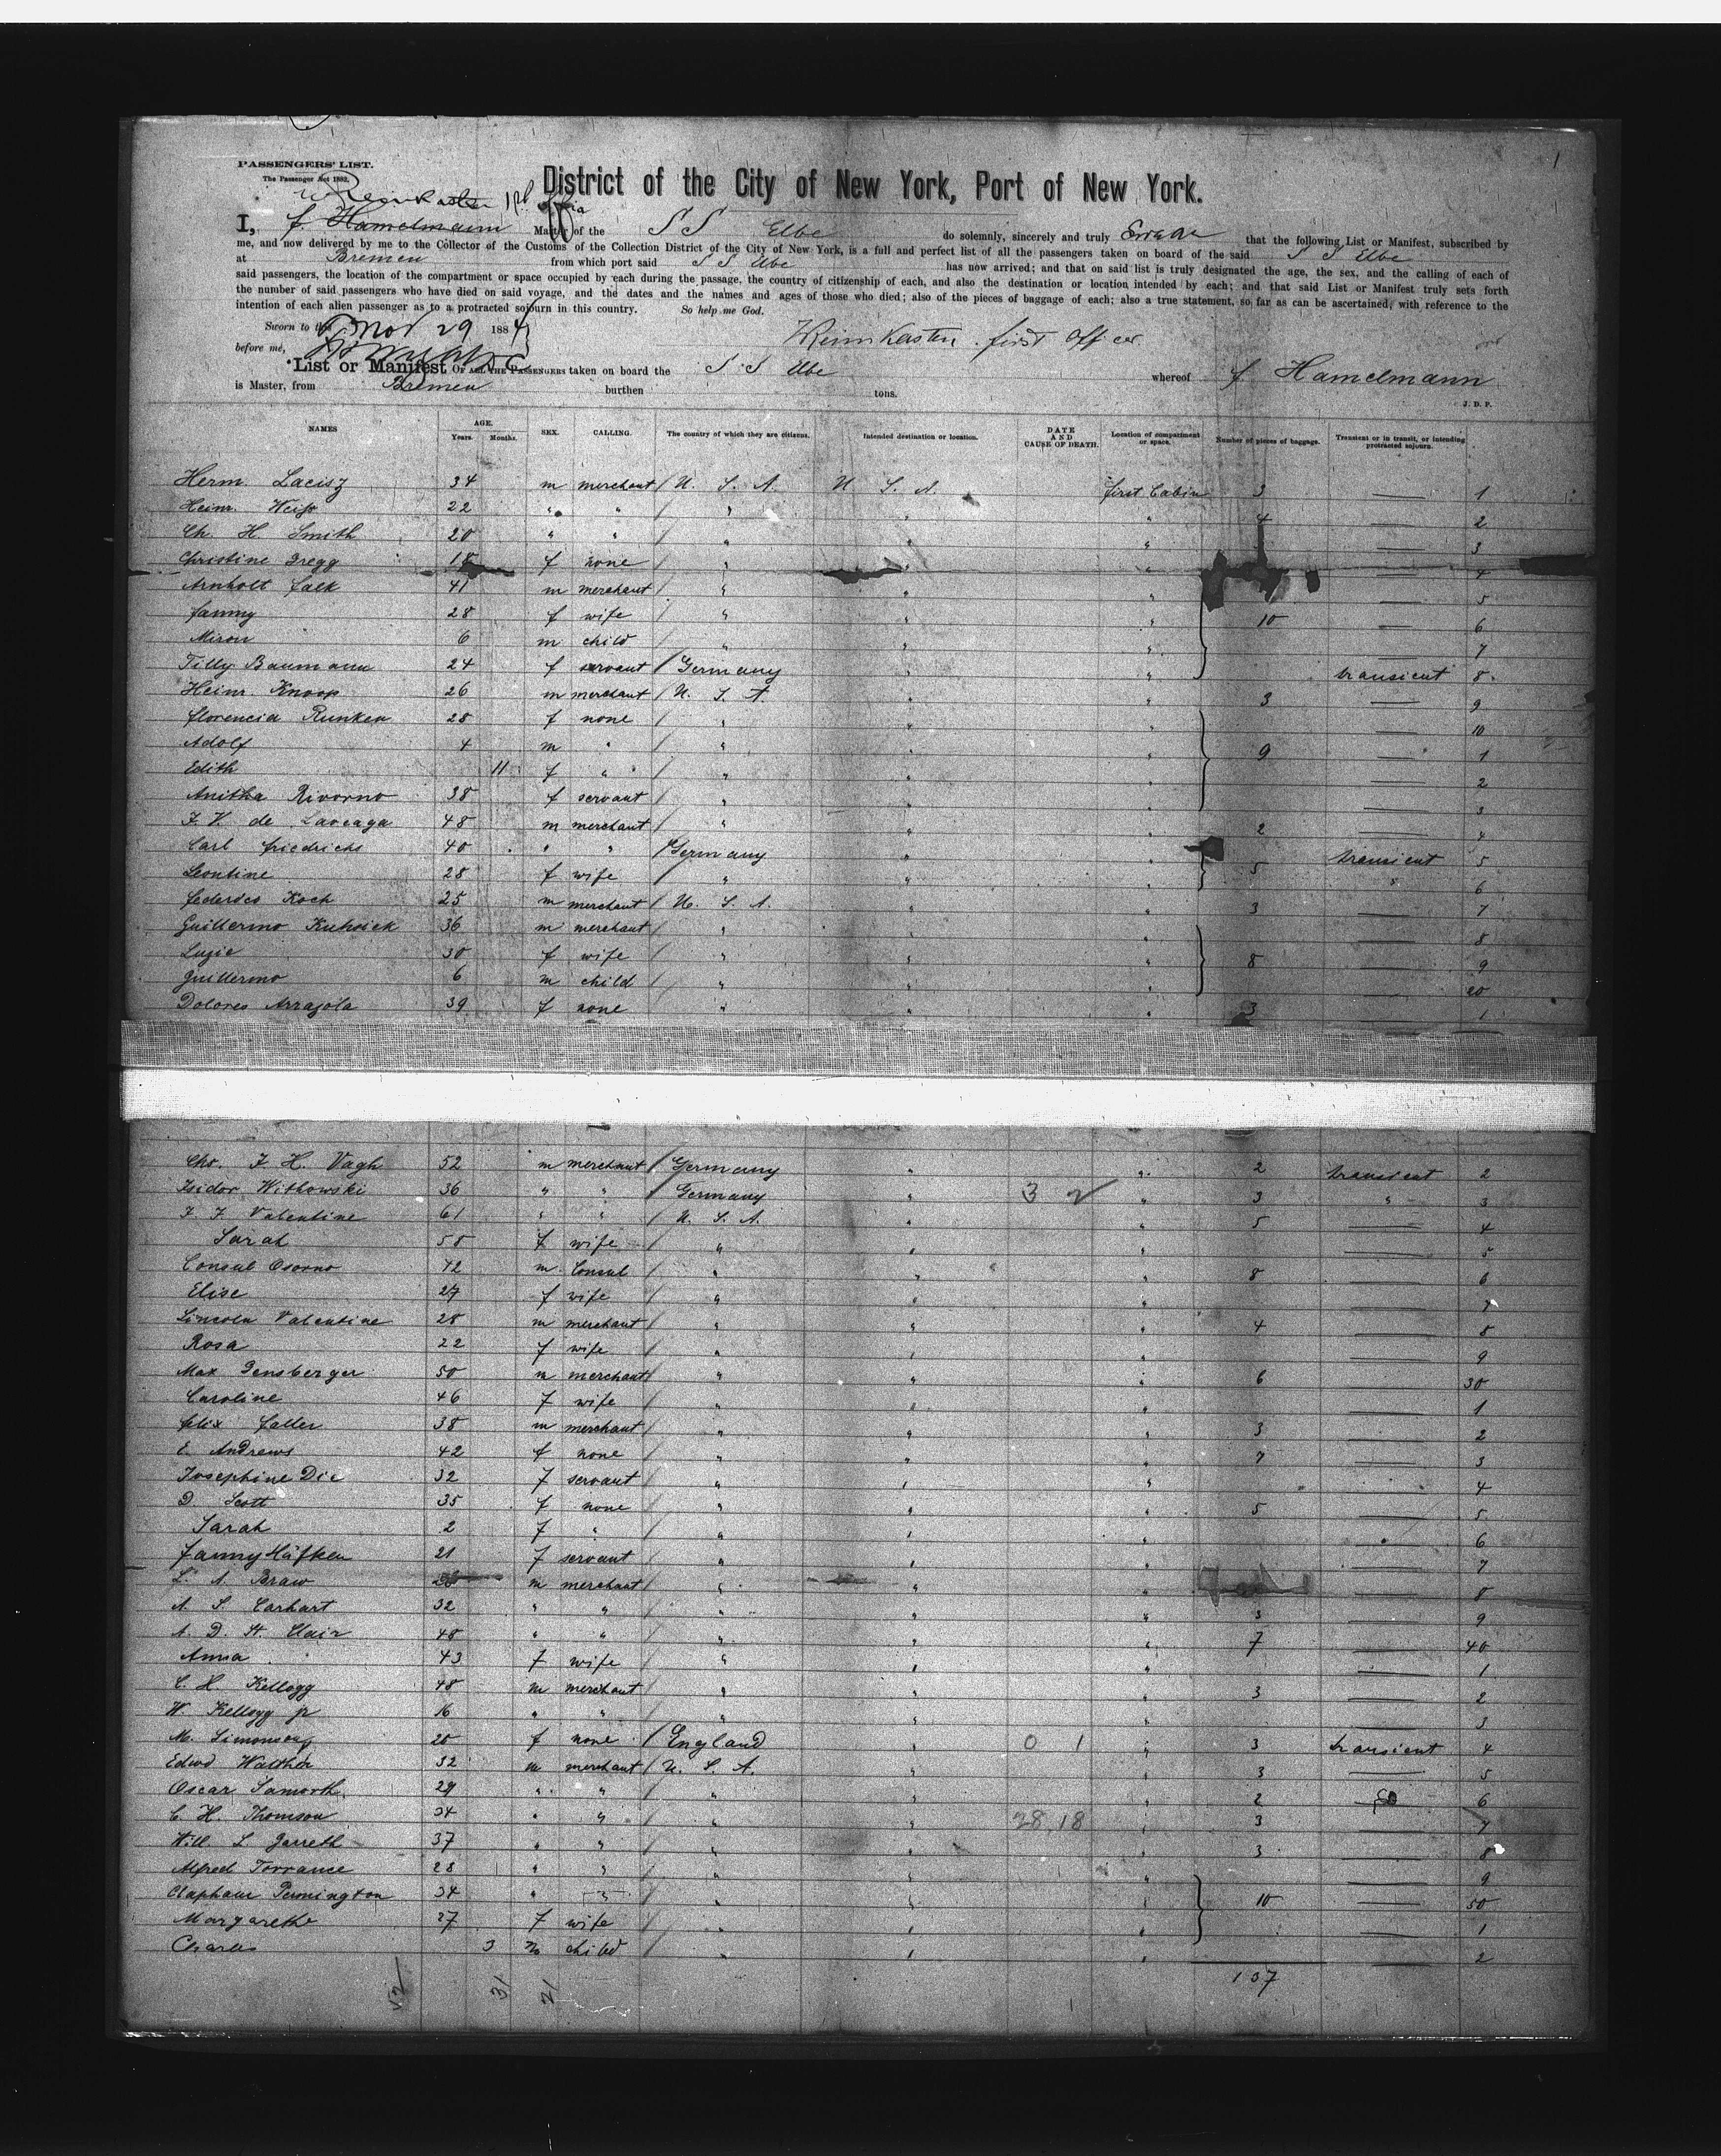 PASSENGERS' LIST.
The Passenger Act 1882.
District of the City of New York, Port of New York.
1
I, f. Hamelmann Master of the S S Elbe do solemnly, sincerely and truly Swear that the following List or Manifest, subscribed by
me, and now delivered by me to the Collector of the Customs of the Collection District of the City of New York, is a full and perfect list of all the passengers taken on board of the said S S Elbe
at Bremen from which port said S S Elbe has now arrived; and that on said list is truly designated the age, the sex, and the calling of each of
said passengers, the location of the compartment or space occupied by each during the passage, the country of citizenship of each, and also the destination or location intended by each; and that said List or Manifest truly sets forth
the number of said passengers who have died on said voyage, and the dates and the names and ages of those who died; also of the pieces of baggage of each; also a true statement, so far as can be ascertained, with reference to the
intention of each alien passenger as to a protracted sojourn in this country. So help me God.
Sworn to this Nov 29 1884
before me,
Reimkasten first Officer
List or Manifest OF ALL THE PASSENGERS taken on board the S S Elbe whereof f Hamelmann
is Master, from Bremen burthen tons.
J. D. P.
NAMES AGE. Years. Months. SEX. CALLING. The country of which they are citizens. Intended destination or location. DATE AND CAUSE OF DEATH. Location of compartment or space. Number of pieces of baggage. Transient or in transit, or intending protracted sojourn.
Herm. Lacisz 34 m merchant / U. S. A. U S A. first Cabin 3 — 1
Heinr. Weiss 22 " " / " " " 4 — 2
Ch. H Smith 20 " " / " " " — 3
Christine Gregg 18 f none / " " " — 4
Arnholt Falk 41 m merchant / " " " — 5
Fanny 28 f wife / " " " 10 — 6
Miron 6 m child / " " " — 7
Tilly Baumann 24 f servant / Germany " " transient 8
Heinr. Knoop 26 m merchant / U. S. A. " " 3 — 9
Florencia Runken 28 f none / " " " — 10
Adolf 4 m " / " " " 9 — 1
Edith 11 f " / " " " — 2
Anitha Rivorno 38 f servant / " " " — 3
F. V. de Laveaga 48 m merchant / " " " 2 — 4
Carl Friedrichs 40 " " / Germany " " 5 transient 5
Leontine 28 f wife / " " " " 6
Federico Koch 25 m merchant / U. S. A. " " 3 — 7
Guillermo Kuhsick 36 m merchant / " " " — 8
Luzie 30 f wife / " " " 8 — 9
Guillermo 6 m child / " " " — 20
Dolores Arrazola 39 f none / " " " 3 — 1
Chr. F. H. Vagh 52 m merchant / Germany " " 2 transient 2
Isidor Withowski 36 " " / Germany " 3 2 " 3 " 3
F. F. Valentine 61 " " / U. S. A. " " 5 — 4
Sarah 58 f wife / " " " — 5
Consul Osorno 42 m Consul / " " " 8 — 6
Elise 27 f wife / " " " — 7
Lincoln Valentine 28 m merchant / " " " 4 — 8
Rosa 22 f wife / " " " — 9
Max Gensberger 50 m merchant / " " " 6 — 30
Caroline 46 f wife / " " " — 1
Felix Faller 38 m merchant / " " " 3 — 2
E. Andrews 42 f none / " " " 7 — 3
Josephine Die 32 f servant / " " " — 4
D. Scott 35 f none / " " " 5 — 5
Sarah 2 f " / " " " 6
Fanny Häfken 21 f servant / " " " — 7
L. A. Braw m merchant / " " " — 8
A. S. Carhart 32 " " / " " " 3 — 9
A. D. St. Clair 48 " " / " " " 7 — 40
Anna 43 f wife / " " " — 1
C. H. Kellogg 48 m merchant / " " " 3 — 2
W. Kellogg jr 16 " " / " " " — 3
M. Simonsen 20 f none / England " 0 1 " 3 transient 4
Edwd Walther 32 m merchant / U. S. A. " " 3 — 5
Oscar Samorth. 29 " " / " " " 2 6
C. H. Thomson 34 " " / " " 28 18 " 3 7
Will. L. Garreth 37 " " / " " " 3 — 8
Alfred Torrance 28 " " / " " " — 9
Clapham Pennington 34 " " / " " " 10 — 50
Margarethe 27 f wife / " " " — 1
Charles 3 m child / " " " — 2
137
52 31 21